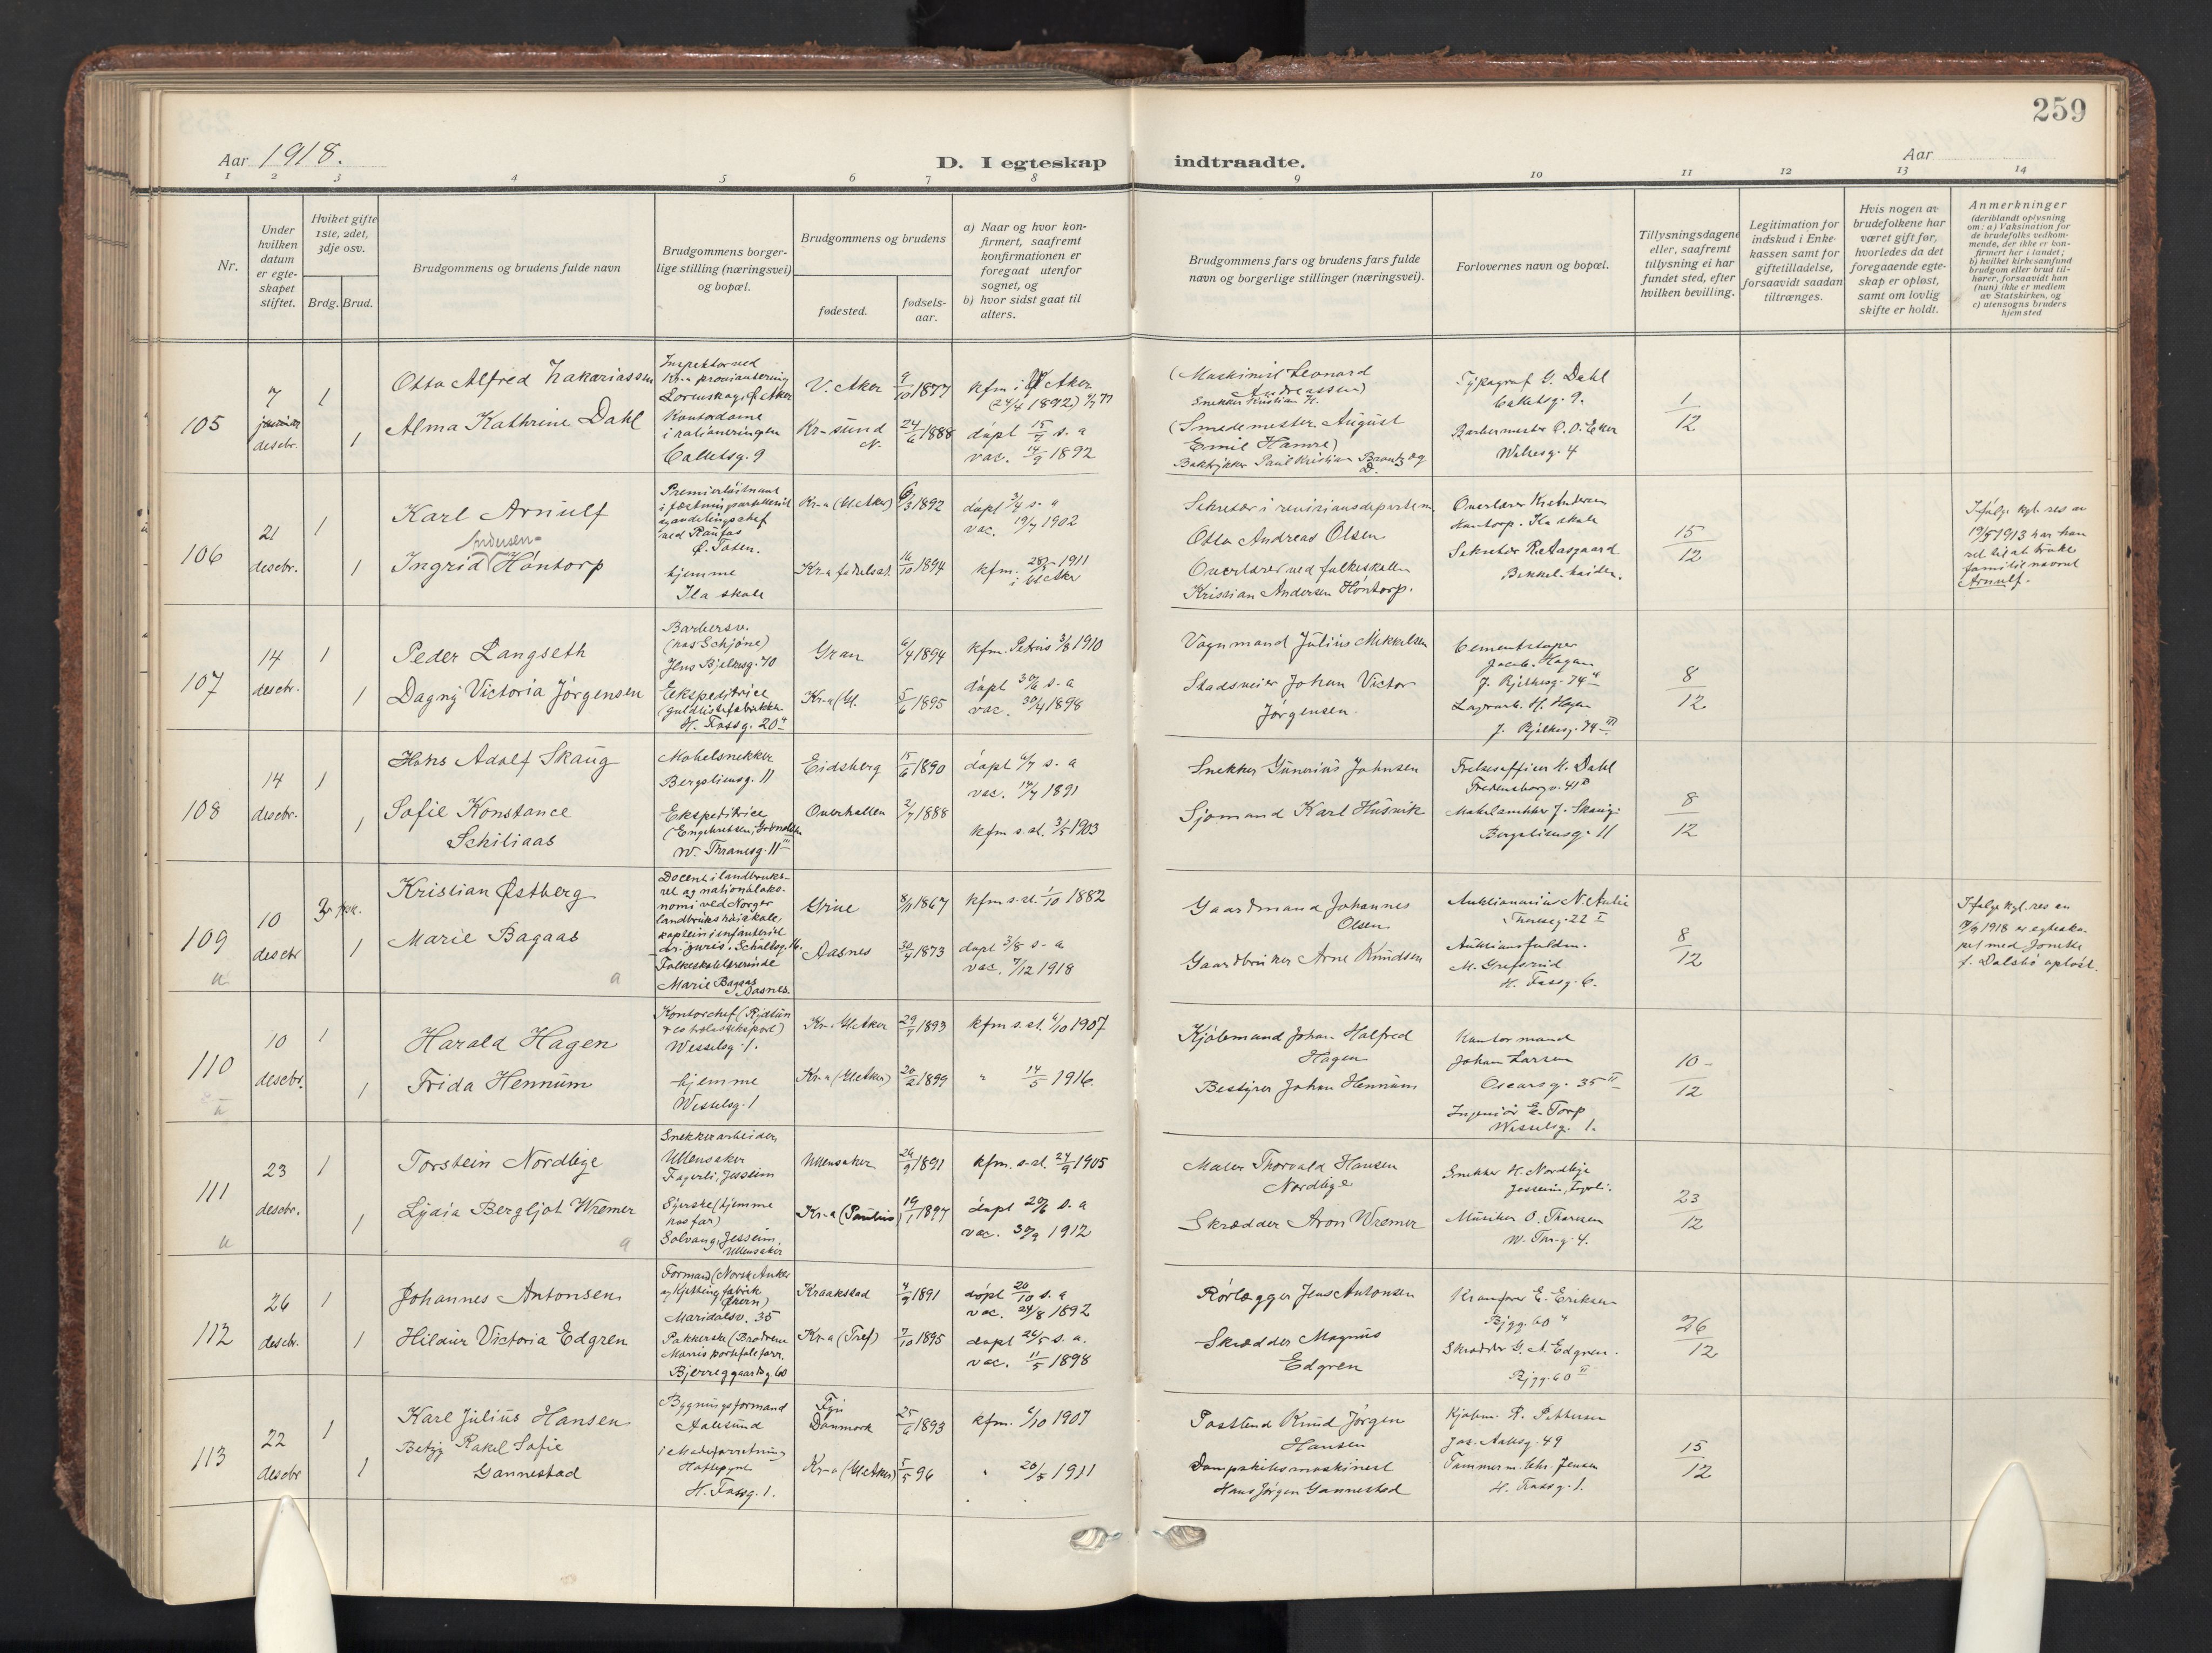 259
Aar 1918.
D. I egteskap indtraadte.
Aar
1 2 3 4 5 6 7 8 9 10 11 12 13 14
Nr.
Under hvilken datum er egteskapet stiftet.
Hviket gifte 1ste, 2det, 3dje osv.
Brdg. Brud.
Brudgommens og brudens fulde navn
Brudgommens borgerlige stilling (næringsvei) og bopæl.
Brudgommens og brudens
fødested.
fødselsaar.
a) Naar og hvor konfirmert, saafremt konfirmationen er foregaat utenfor sognet, og
b) hvor sidst gaat til alters.
Brudgommens fars og brudens fars fulde navn og borgerlige stillinger (næringsvei).
Forlovernes navn og bopæl.
Tillysningsdagene eller, saafremt tillysning ei har fundet sted, efter hvilken bevilling.
Legitimation for indskud i Enkekassen samt for giftetilladelse, forsaavidt saadan tiltrænges.
Hvis nogen av brudefolkene har været gift før, hvorledes da det foregaaende egteskap er opløst, samt om lovlig skifte er holdt.
Anmerkninger (deriblandt oplysning om: a) Vaksination for de brudefolks vedkommende, der ikke er konfirmert her i landet; b) hvilket kirkesamfund brudgom eller brud tilhører, forsaavidt han (hun) ikke er medlem av Statskirken, og c) utensogns bruders hjemsted
105
7
desebr.
1
1
Otto Alfred Zakariassen
Alma Kathrine Dahl
Inspektør ved
Kr-a proviantering
Kontordame
i rationeringen
Calletsg. 9
V. Aker
Kr-sund
N.
9/10 1877
24/6 1888
kfm i V Aker
(24/4 1892)
døpt 15/7 s. a
vac. 14/9 1892
(Maskinist Leonard
Andreassen)
Snekker Kristian
(Smedemester August
Emil Hamre)
Boktrykker Paul Kristian
Typograf G. Dahl
Calletsg. 9.
Barbermester
1/12
106
21
desebr.
1
1
Karl Arnulf
Andersen
Ingrid Høntorp
Premierløitnant
ved Raufos
Ø. Toten.
hjemme
Ila skole
Kr-a (V Aker)
Kr-a fødselsst.
6/3 1892
16/10 1894
døpt 3/4 s. a
vac. 19/7 1902
kfm. 1911
i V Aker
Sekretær i revisionsdepartem.
Otto Andreas Olsen
Overlærer ved folkeskolen
Kristian Andersen Høntorp.
Overlærer Kr Andersen
Høntorp. Ila skole
Sekretær R. Aasgaard
15/12
Ifølge kgl. res av
1913 har han
ret til at bruke
familienavnet
Arnulf.
107
14
desebr.
1
1
Peder Langseth
Dagny Victoria Jørgensen
Barbersv.
(hos Schjøne)
Jens Bjelkesg. 70
Ekspeditrice
(guldlistefabrikken
H. Fossg. 20
Gran
Kr-a (
6/4 1894
5/6 1895
kfm. Petrus 3/8 1910
døpt 30/6 s. a
vac. 30/4 1898
Vognmand Julius Mikkelsen
Stadsveier Johan Victor
Jørgensen
Cementstøper
Jacob Hagen
J. Bjelkesg. 74
Lagerarb. H. Hagen
J. Bjelkesg. 74 III
8/12
108
14
desebr.
1
1
Hans Adolf Skaug
Sofie Konstance
Schiliaas
Møbelsnekker
Bergsliensg. 11
Ekspeditrice
W. Thranesg. 11 III
Eidsberg
Overhallen
15/6 1890
2/7 1888
døpt 6/7 s. a
vac. 14/7 1891
kfm s. st. 3/5 1903
Snekker Gunerius Johnsen
Sjømand Karl Husvik
Frelsesofficer H. Dahl
Fredensborgv. 41
Møbelsnekker J. Skaug
Bergsliensg. 11
8/12
109
10
desebr
1
Kristian Østberg
Marie Bagaas
Docent i landbruks-
ret og nationaløko-
nomi ved Norges
landbrukshøiskole,
kaptein i infanteriet
dr. juris. Schultzg. 16.
Folkeskolelærerinde
Marie Bagaas
Aasnes.
Grue
Aasnes
8/11 1867
30/4 1873
kfm s. st. 1/10 1882
døpt 3/8 s. a
vac. 7/12 1918
Gaardmand Johannes
Olsen
Gaardbruker Arne Knudsen
Auktionarius N. Aulie
Theresesg. 22 I
M. Grefsrud
H. Fossg. 6.
8/12
Ifølge kgl. res av
1918 er egteska-
pet med
f. Dalsbø opløst.
110
10
desebr.
1
1
Harald Hagen
Frida Hennum
Kontorchef
Wesselsg. 1.
hjemme
Wesselsg. 1
Kr. V Aker
Kr-a (V Aker)
29/7 1893
20/2 1899
kfm s. st. 6/10 1907
" 14/5 1916.
Kjølemand Johan Halfred
Hagen
Bestyrer Johan Hennum
Kontormand
Johan Larsen
Oscarsg. 35 II
Ingeniør E. Torp
Wesselsg. 1.
10/12
111
23
desebr.
1
1
Torstein Nordbye
Lydia Bergljot Wremer
Snekkerarbeider,
Ullensaker
Fagerli, Jessheim
Syerske (hjemme
hos far)
Solvang, Jesseim,
Ullensaker
Ullensaker
Kr-a (Paulus)
26/9 1891
19/1 1897
kfm. s. st. 24/9 1905
døpt 20/6 s. a
vac. 30/9 1912
Maler Thorvald Hansen
Nordbye
Skrædder Aron Wremer
Snekker H. Nordbye
Musiker O. Thoresen
W. Thr.g. 4.
23/12
112
26
desebr.
1
1
Johannes Antonsen
Hildur Victoria Edgren
Formand (Norsk Anker
og Kjættingfabrik
Økern)
Maridalsv. 35
Pakkerske (Brødrene
Bjerregaardsg. 60
Kraakstad
Kr-a (Tref)
4/9 1891
7/10 1895
døpt 20/10 s. a
vac. 24/8 1892
døpt 26/5 s. a.
vac. 11/5 1898
Rørlægger Jens Antonsen
Skrædder Magnus
Edgren
Kranfører E. Eriksen
Bjgg. 60
Skrædder G. A. Edgren.
Bjgg. 60 II
26/12
113
22
desebr
1
1
Karl Julius Hansen
Betzy Rakel Sofie
Gannestad
Bygningsformand
Aalesund
i Modeforretning
Hattepynt
H. Fossg. 1.
Fyn
Danmark
Kr-a (V Aker)
25/6 1893
5/5 96
kfm. 6/10 1907
" 20/5 1911
Postbud Knud Jørgen
Hansen
Dampskibsmaskinist
Hans Jørgen Gannestad
Kjøbm. R. Pettersen
Jac. Aallsg. 49
Tømmerm. Chr. Jensen
H. Fossg. 1.
15/12